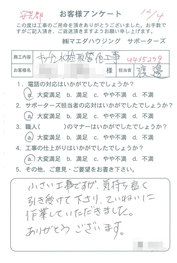 お客様アンケート
この度は工事のご用命を頂きありがとうございました。お手数で
すがご記入頂き、ご返送頂きますようお願い申し上げます。
㈱マエダハウジング サポーターズ
施工内容 キッチン水栓取替他工事
お客様名 様 担当者 渡邊
1. 電話の対応はいかがでしたでしょうか?
a. 大変満足 b. 満足 c. やや不満 d. 不満
2. サポーターズ担当者の応対はいかがでしたでしょうか?
a. 大変満足 b. 満足 c. やや不満 d. 不満
3. 職人( )のマナーはいかがでしたでしょうか?
a. 大変満足 b. 満足 c. やや不満 d. 不満
4. 工事の仕上がりはいかがでしたでしょうか?
a. 大変満足 b. 満足 c. やや不満 d. 不満
5. その他、ご意見・ご要望をお書き下さい。
小さい工事ですが、気持ち良く
引き受けて下さり、ていねいに
作業していただきました。
ありがとうございます。